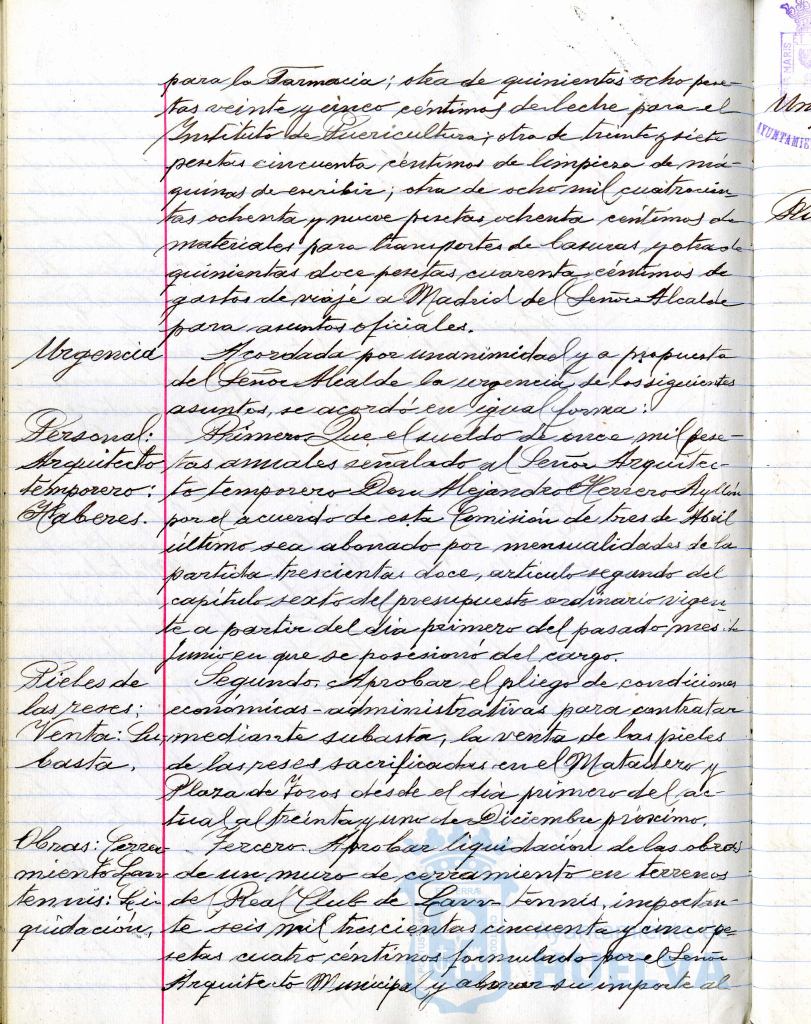 para la Farmacia; otra de quinientas ocho pese-
tas veinte y cinco céntimos de leche para el
Instituto de Puericultura; otra de treinta y siete
pesetas cincuenta céntimos de limpieza de má-
quinas de escribir; otra de ocho mil cuatrocien-
tas ochenta y nueve pesetas ochenta céntimos de
materiales para transportes de basuras y otra de
quinientas doce pesetas cuarenta céntimos de
gastos de viaje a Madrid del Señor Alcalde
para asuntos oficiales.
Urgencia
Acordada por unanimidad y a propuesta
del Señor Alcalde la urgencia de los siguientes
asuntos, se acordó en igual forma:
Personal:
Arquitecto
temporero:
Haberes.
Primero. Que el sueldo de once mil pese-
tas anuales señalado al Señor Arquitec-
to temporero Don Alejandro Herrero Ayllón
por el acuerdo de esta Comisión de tres de Abril
último sea abonado por mensualidades de la
partida trescientas doce, artículo segundo del
capítulo sexto del presupuesto ordinario vigen-
te a partir del día primero del pasado mes de
Junio en que se posesionó del cargo.
Pieles de
las reses:
Venta: Su-
basta.
Segundo. Aprobar el pliego de condiciones
económicas-administrativas para contratar
mediante subasta, la venta de las pieles
de las reses sacrificadas en el Matadero y
Plaza de Toros desde el día primero del ac-
tual al treinta y uno de Diciembre próximo.
Obras: Cerra-
miento Lawn
tennis: Li-
quidación.
Tercero. Aprobar liquidación de las obras
de un muro de cerramiento en terrenos
del Real Club de Lawn-tennis, importan-
te seis mil trescientas cincuenta y cinco pe-
setas cuatro céntimos formulado por el Señor
Arquitecto Municipal y abonar su importe al
Ayuntamiento
HUELVA
MARIS
AYUNTAMIE